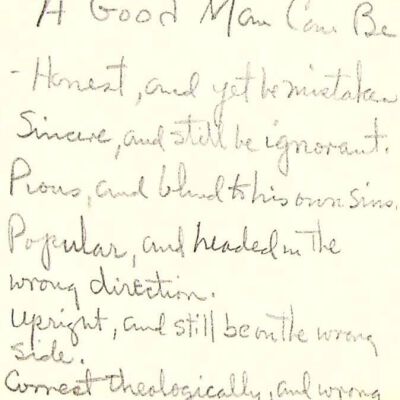 A Good Man Can Be
- Honest, and yet be mistaken
Sincere, and still be ignorant.
Pious, and blind to his own sins.
Popular, and headed in the
wrong direction.
Upright, and still be on the wrong
side.
Correct theologically, and wrong